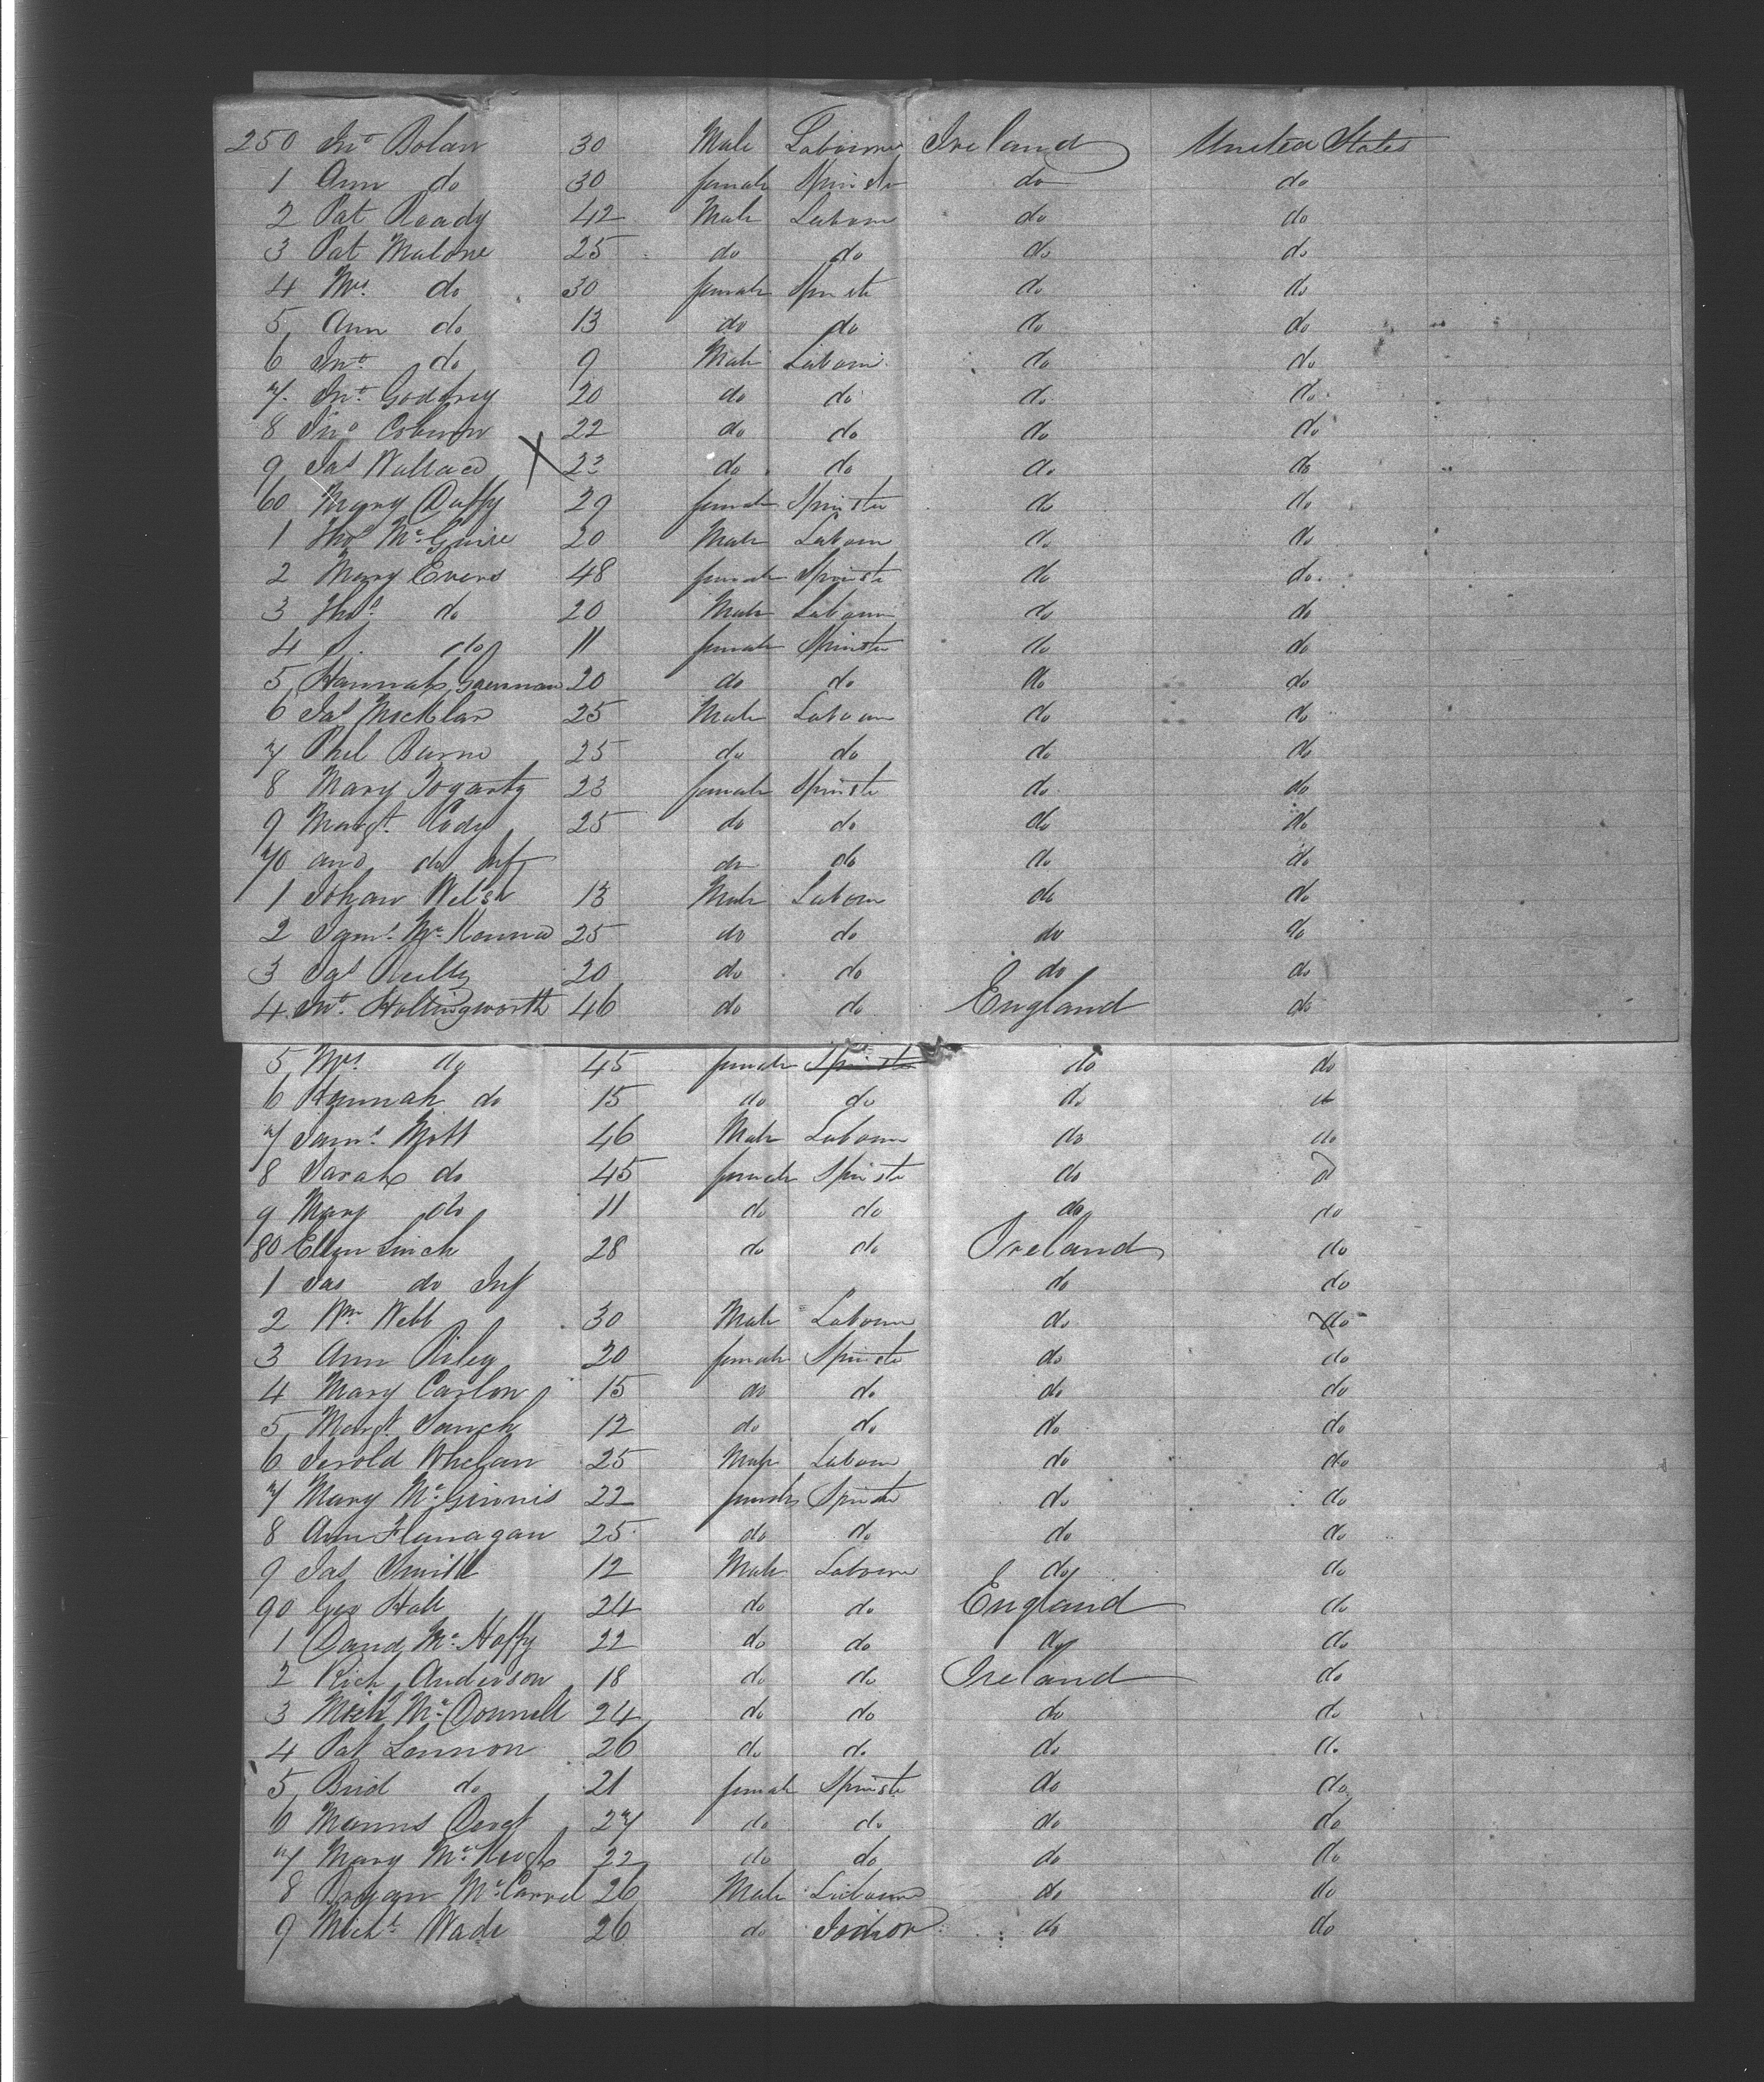 250 Jno Bolan 30 Male Labourer Ireland United States
1 Ann do 30 female Spinster do do
2 Pat Ready 42 Male Labourer do do
3 Pat Malone 25 do do do do
4 Mrs do 30 female Spinster do do
5 Ann do 13 do do do do
6 Jno do 9 Male Labourer do do
7 Jno Godfrey 20 do do do do
8 Jno Coburn 22 do do do do
9 Jas Wallace X 23 do do do do
60 Mary Duffy 29 female Spinster do do
1 Thos McGuire 20 Male Labourer do do
2 Mary Evers 48 female Spinster do do
3 Thos do 20 Male Labourer do do
4 S. do 11 female Spinster do do
5 Hannah 20 do do do do
6 Jas 25 Male Labourer do do
7 Phil Burne 25 do do do do
8 Mary Fogarty 23 female Spinster do do
9 Margt Cody 25 do do do do
70 and do Inf do do do do
1 Johan Welsh 13 Male Labourer do do
2 McKenna 25 do do do do
3 Jas Reilly 20 do do do do
4 Jno Hollingworth 46 do do England do
5 Mrs do 45 female Spinster do do
6 Hannah do 15 do do do do
7 Saml Mott 46 Male Labourer do do
8 Sarah do 45 female Spinster do do
9 Mary do 11 do do do do
80 Ellen Linch 28 do do Ireland do
1 Jas do Inf do do
2 Wm Webb 30 Male Labourer do do
3 Ann Riley 20 female Spinster do do
4 Mary Carlon 15 do do do do
5 Margt 12 do do do do
6 Jerold Whelan 25 Male Labourer do do
7 Mary McGinnis 22 female Spinster do do
8 Ann Flanagan 25 do do do do
9 Jas Smith 12 Male Labourer do do
90 Geo Hall 24 do do England do
1 David McHaffy 22 do do do do
2 Rich Anderson 18 do do Ireland do
3 Mich McDonnell 24 do do do do
4 Pat Lennon 26 do do do do
5 Brid do 21 female Spinster do do
6 27 do do do do
7 Mary McHugh 22 do do do do
8 Bryan McCarrel 26 Male Labourer do do
9 Michl Wade 26 do do do